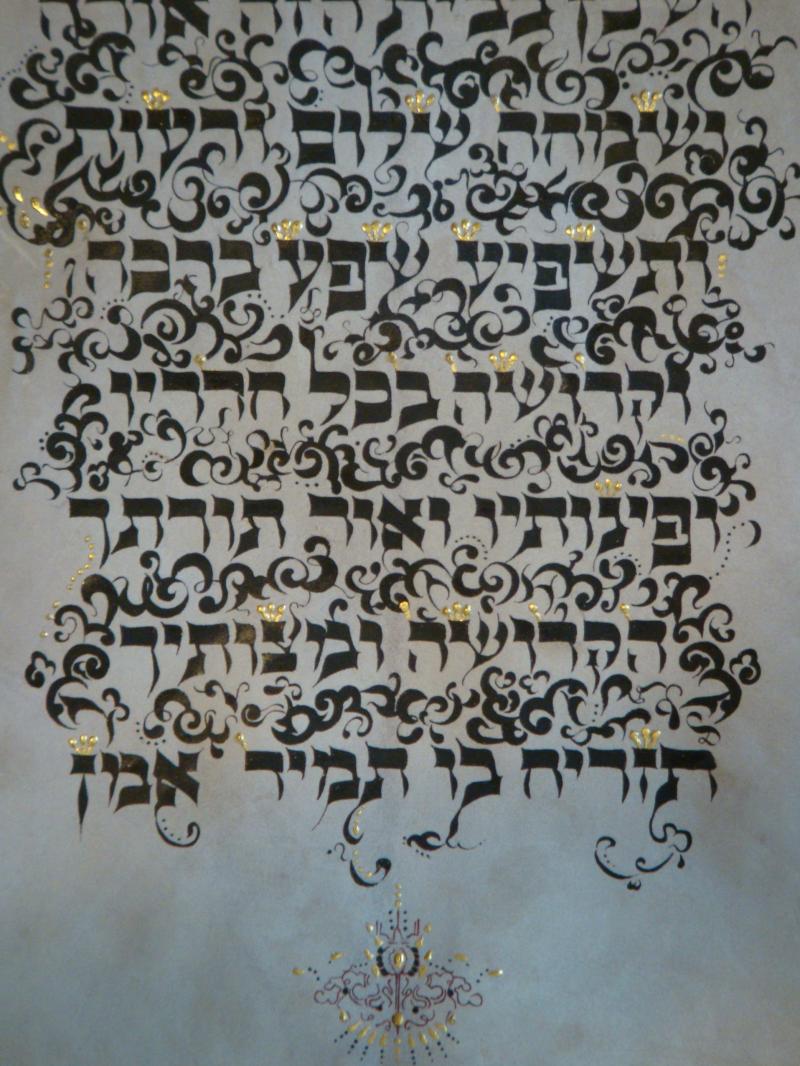 בבית הזה אורה
ושמחה שלום ורעות
ותשפיע שפע ברכה
וקדושה בכל חדריו
ופינותיו ואור תורתך
הקדושה ומצותיך
תזריח בו תמיד אמן